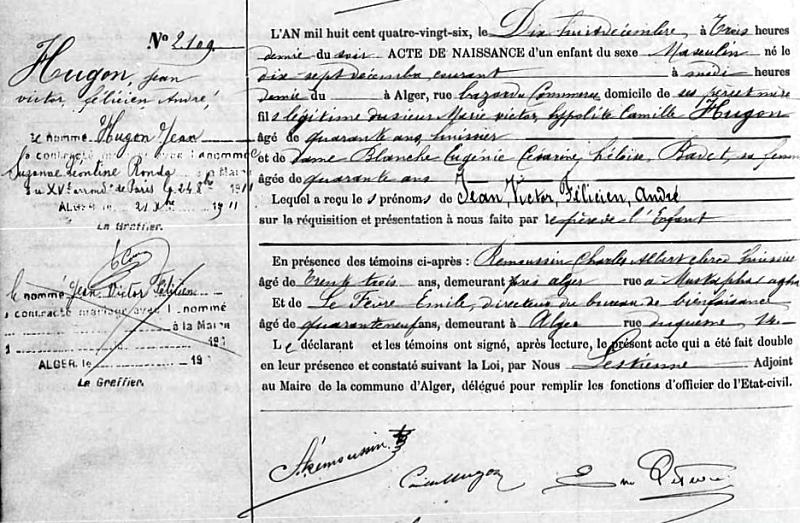 No 2109
Hugon, jean
victor, félicien André,
Le nommé Hugon Jean
a contracté mariage avec l a nommée
Suzanne Léontine Ronda à la Mairie
du XVe arrondt de Paris le 24 8bre 1911
ALGER le 21 Xbre 1911
Le Greffier.
Le nommé Jean Victor Félicien
a contracté mariage avec l nommé
à la Mairie
l 191
ALGER, le 191
Le Greffier.
L'AN mil huit cent quatre-vingt-six, le Dix huit décembre, à Trois heures
demie du soir ACTE DE NAISSANCE d'un enfant du sexe Masculin né le
dix sept décembre courant à midi heures
demie du à Alger, rue bazar du Commerce, domicile de ses père et mère
fils légitime du sieur Marie victor, hyppolite Camille Hugon
âgé de quarante ans, huissier
et de Dame Blanche Eugénie Césarine, Héloïse, Badet, sa femme
âgée de quarante ans
Lequel a reçu les prénoms de Jean, Victor, Félicien, André
sur la réquisition et présentation à nous faite par le père de l'Enfant
En présence des témoins ci-après : Remoussin Charles Albert clerc huissier
âgé de trente trois ans, demeurant près alger rue à Mustapha agha
Et de Le Fèvre Emile, directeur du bureau de bienfaisance
âgé de quarante neuf ans, demeurant à Alger rue duquesne 14
Le déclarant et les témoins ont signé, après lecture, le présent acte qui a été fait double
en leur présence et constaté suivant la Loi, par Nous Lestienne Adjoint
au Maire de la commune d'Alger, délégué pour remplir les fonctions d'officier de l'Etat-civil.